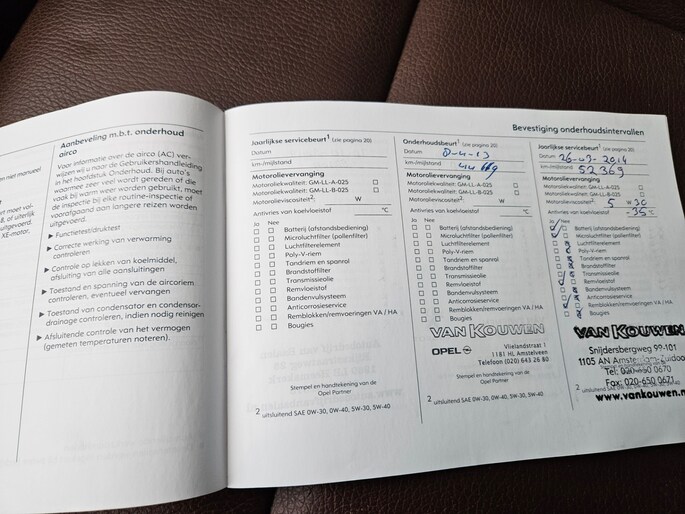 Aanbeveling m.b.t. onderhoud
airco
Voor informatie over de airco (AC) ver-
wijzen wij u naar de Gebruikershandleiding
in het hoofdstuk Onderhoud. Bij auto's
waarmee zeer veel wordt gereden of die
vaak bij warm weer worden gebruikt, moet
de inspectie bij elke routine-inspectie of
voorafgaand aan langere reizen worden
uitgevoerd.
Functietest/druktest
Correcte werking van verwarming
controleren
Controle op lekken van koelmiddel,
afsluiting van alle aansluitingen
Toestand en spanning van de aircoriem
controleren, eventueel vervangen
Toestand van condensator en condensor-
drainage controleren, indien nodig reinigen
Afsluitende controle van het vermogen
(gemeten temperaturen noteren).
Bevestiging onderhoudsintervallen
Jaarlijkse servicebeurt1 (zie pagina 20)
Datum
km-/mijlstand
Motorolievervanging
Motoroliekwaliteit: GM-LL-A-025
Motoroliekwaliteit: GM-LL-B-025
Motorolieviscositeit2: W
Antivries van koelvloeistof °C
Ja Nee
Batterij (afstandsbediening)
Microluchtfilter (pollenfilter)
Luchtfilterelement
Poly-V-riem
Tandriem en spanrol
Brandstoffilter
Transmissieolie
Remvloeistof
Bandenvulsysteem
Anticorrosieservice
Remblokken/remvoeringen VA / HA
Bougies
Stempel en handtekening van de
Opel Partner
2 uitsluitend SAE 0W-30, 0W-40, 5W-30, 5W-40
Onderhoudsbeurt1 (zie pagina 20)
Datum
km-/mijlstand
Motorolievervanging
Motoroliekwaliteit: GM-LL-A-025
Motoroliekwaliteit: GM-LL-B-025
Motorolieviscositeit2: W
Antivries van koelvloeistof °C
Ja Nee
Batterij (afstandsbediening)
Microluchtfilter (pollenfilter)
Luchtfilterelement
Poly-V-riem
Tandriem en spanrol
Brandstoffilter
Transmissieolie
Remvloeistof
Bandenvulsysteem
Anticorrosieservice
Remblokken/remvoeringen VA / HA
Bougies
VAN KOUWEN
OPEL
Vlielandstraat 1
1181 HL Amstelveen
Telefoon (020) 643 26 80
Stempel en handtekening van de
Opel Partner
2 uitsluitend SAE 0W-30, 0W-40, 5W-30, 5W-40
Jaarlijkse servicebeurt1 (zie pagina 20)
Datum 26-03-2014
km-/mijlstand 52369
Motorolievervanging
Motoroliekwaliteit: GM-LL-A-025
Motoroliekwaliteit: GM-LL-B-025
Motorolieviscositeit2: 5 W 30
Antivries van koelvloeistof -35 °C
Ja Nee
Batterij (afstandsbediening)
Microluchtfilter (pollenfilter)
Luchtfilterelement
Poly-V-riem
Tandriem en spanrol
Brandstoffilter
Transmissieolie
Remvloeistof
Bandenvulsysteem
Anticorrosieservice
Remblokken/remvoeringen VA / HA
Bougies
VAN KOUWEN
Snijdersbergweg 99-101
1105 AN Amsterdam-Zuidoost
Tel: 020-650 0670
Fax: 020-650 0671
www.vankouwen.n
2 uitsluitend SAE 0W-30, 0W-40, 5W-30, 5W-40